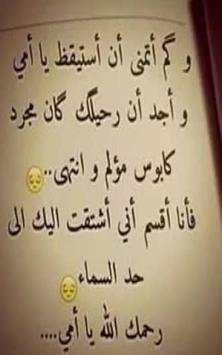 و گم أتمنى أن أستيقظ يا أمي
و أجد أن رحيلگ گان مجرد
كابوس مؤلم و انتهى..😔
فأنا أقسم أني أشتقت اليك الى
حد السماء😔
رحمك الله يا أمي....